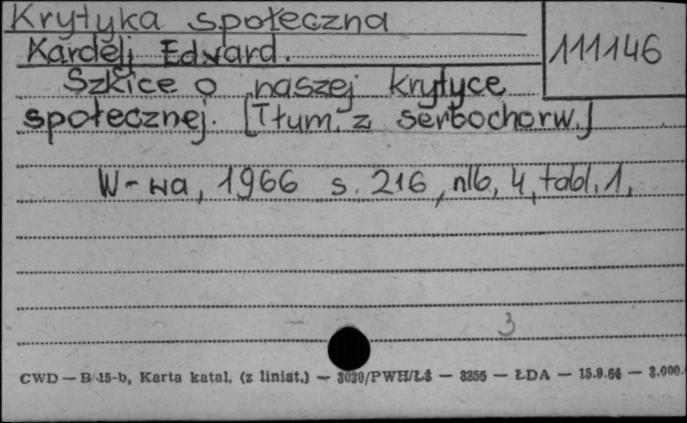 Krytyka społeczna
111146
Kardelj Edward.
Szkice o naszej krytyce
społecznej. [Tłum. z serbochorw.]
W-wa, 1966 s. 216, nlb, 4, tabl. 1,
3
CWD — B/15-b, Karta katal. (z liniat.) — 3039/PWH/Ł3 — 3255 — ŁDA — 15.9.64 — 2.000.